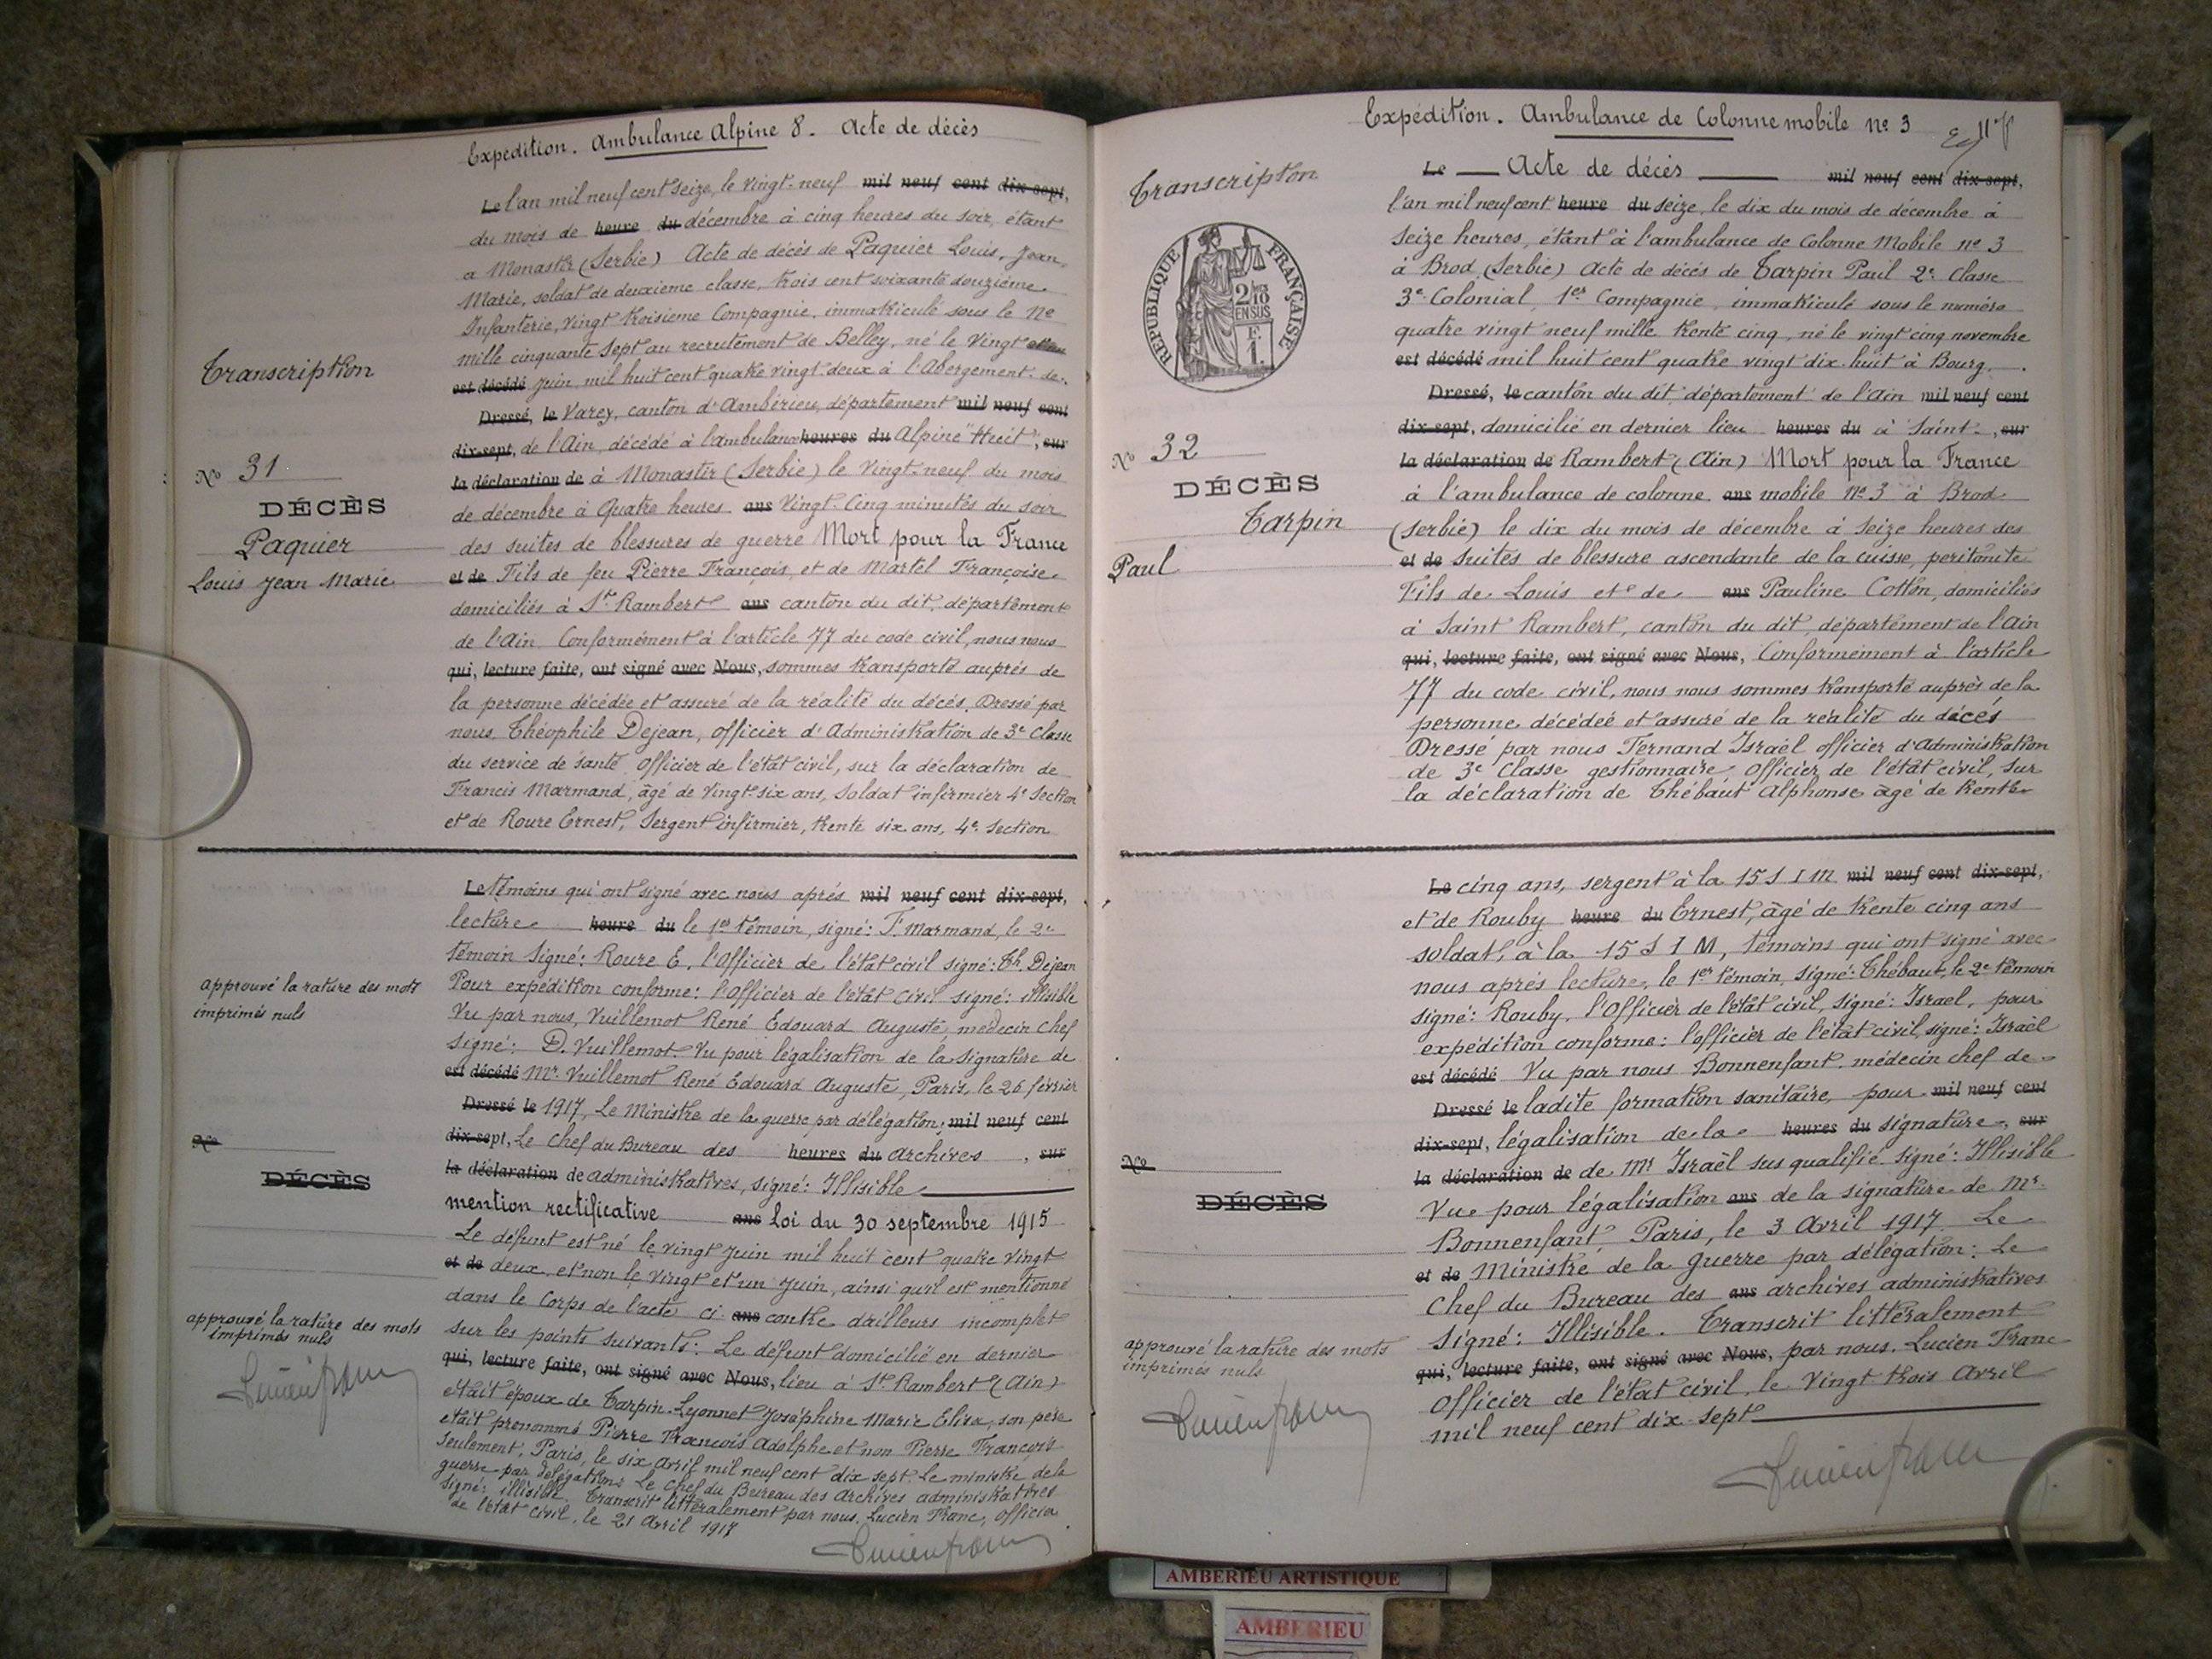 Expédition. Ambulance Alpine 8. Acte de décès
Le l'an mil neuf cent seize, le vingt-neuf mil neuf cent dix-sept,
du mois de heure du décembre à cinq heures du soir, étant
a Monastir (Serbie) Acte de décès de Paquier Louis, Jean,
Marie, soldat de deuxième classe, trois cent soixante douzième
Infanterie, vingt troisième Compagnie, immatriculé sous le No
mille cinquante sept au recrutement de Belley, né le Vingt et un
est décédé juin mil huit cent quatre vingt deux à l'Abergement-de-
Dressé, le Varey, canton d'Ambérieu, département mil neuf cent
dix-sept, de l'Ain, décédé à l'ambulance heures du Alpine "Huit", sur
la déclaration de à Monastir (Serbie) le vingt-neuf du mois
de décembre à Quatre heures ans Vingt-Cinq minutes du soir
des suites de blessures de guerre Mort pour la France
et de Fils de feu Pierre François, et de Martel Françoise
domiciliés à St Rambert ans canton du dit, département
de l'Ain Conformément à l'article 77 du code civil, nous nous
qui, lecture faite, ont signé avec Nous, sommes transporté auprès de
la personne décédée et assuré de la réalité du décès. Dressé par
nous Théophile Dejean, officier d'Administration de 3e Classe
du service de santé Officier de l'état civil, sur la déclaration de
Francis Marmand, âgé de vingt-six ans, soldat infirmier 4e Section
et de Roure Ernest, Sergent infirmier, trente six ans, 4e Section
Transcription
No 31
DÉCÈS
Paquier
Louis Jean Marie
Le témoins qui ont signé avec nous après mil neuf cent dix-sept,
lecture heure du le 1er témoin, signé: F. Marmand, le 2e
témoin Signé: Roure E, l'Officier de l'état civil signé: Th. Dejean
Pour expédition conforme: l'Officier de l'état Civil signé: illisible
Vu par nous, Vuillemot René Edouard Auguste, médecin chef
signé: D. Vuillemot. Vu pour légalisation de la signature de
est décédé Mr Vuillemot René Edouard Auguste, Paris, le 26 février
Dressé le 1917, Le Ministre de la guerre par délégation; mil neuf cent
dix-sept, Le Chef du Bureau des heures du Archives , sur
la déclaration de administratives, signé: Illisible
mention rectificative ans Loi du 30 septembre 1915
Le défunt est né le vingt juin mil huit cent quatre vingt
et de deux, et non le vingt et un juin, ainsi qu'il est mentionné
dans le Corps de l'acte ci ans contre d'ailleurs incomplet
sur les points suivants: Le défunt domicilié en dernier
qui, lecture faite, ont signé avec Nous, lieu à St Rambert (Ain)
était époux de Tarpin-Lyonnet Joséphine Marie Elisa, son père
était prénommé Pierre François Adolphe et non Pierre François
seulement, Paris, le six Avril mil neuf cent dix sept. Le ministre de la
guerre par délégation: Le chef du Bureau des Archives administratives
signé: illisible. Transcrit littéralement par nous, Lucien Franc, officier
de l'état civil, le 21 Avril 1917
Lucien Franc
approuvé la rature des mots
imprimés nuls
No
DÉCÈS
approuvé la rature des mots
imprimés nuls
Lucien Franc
Expédition. Ambulance de Colonne mobile no 3
Le Acte de décès mil neuf cent dix-sept,
l'an mil neuf cent heure du seize, le dix du mois de décembre à
seize heures, étant à l'ambulance de Colonne Mobile no 3
à Brod (Serbie) Acte de décès de Tarpin Paul 2e Classe
3e Colonial 1er Compagnie, immatriculé sous le numéro
quatre vingt neuf mille trente cinq, né le vingt cinq novembre
est décédé mil huit cent quatre vingt dix-huit à Bourg.
Dressé, le canton du dit, département de l'Ain mil neuf cent
dix-sept, domicilié en dernier lieu heures du à Saint-, sur
la déclaration de Rambert (Ain) Mort pour la France
à l'ambulance de colonne ans mobile No 3 à Brod
(Serbie) le dix du mois de décembre à seize heures des
et de Suites de blessure ascendante de la cuisse, peritonite
Fils de Louis et de ans Pauline Cotton, domiciliés
à Saint Rambert, canton du dit, département de l'Ain
qui, lecture faite, ont signé avec Nous, Conformément à l'article
77 du code civil, nous nous sommes transporté auprès de la
personne décédée et assuré de la réalité du décès
Dressé par nous Fernand Israël officier d'Administration
de 3e Classe gestionnaire, Officier de l'état civil, sur
la déclaration de Thébaut Alphonse âgé de trente
Transcription
RÉPUBLIQUE FRANÇAISE
2/10
EN SUS
No 32
DÉCÈS
Tarpin
Paul
Le cinq ans, sergent à la 15 S I M mil neuf cent dix-sept,
et de Rouby heure du Ernest, âgé de trente cinq ans
soldat, à la 15 S I M, témoins qui ont signé avec
nous après lecture, le 1er témoin, signé: Thébaut, le 2e témoin
signé: Rouby, l'Officier de l'état civil, signé: Israel, pour
expédition conforme: l'officier de l'état civil, signé: Israël
est décédé Vu par nous Bonnenfant, médecin chef de
Dressé le ladite formation sanitaire, pour mil neuf cent
dix-sept, légalisation de la heures du signature, sur
la déclaration de de Mr Israël sus qualifié signé: Illisible
Vue pour légalisation ans de la signature de Mr
Bonnenfant, Paris, le 3 Avril 1917. Le
et de Ministre de la guerre par délégation: Le
Chef du Bureau des ans archives administratives
signé: Illisible. Transcrit littéralement
qui, lecture faite, ont signé avec Nous, par nous, Lucien Franc
Officier de l'état civil, le vingt trois Avril
mil neuf cent dix-sept
Lucien Franc
No
DÉCÈS
approuvé la rature des mots
imprimés nuls
Lucien Franc
AMBERIEU ARTISTIQUE
AMBERIEU